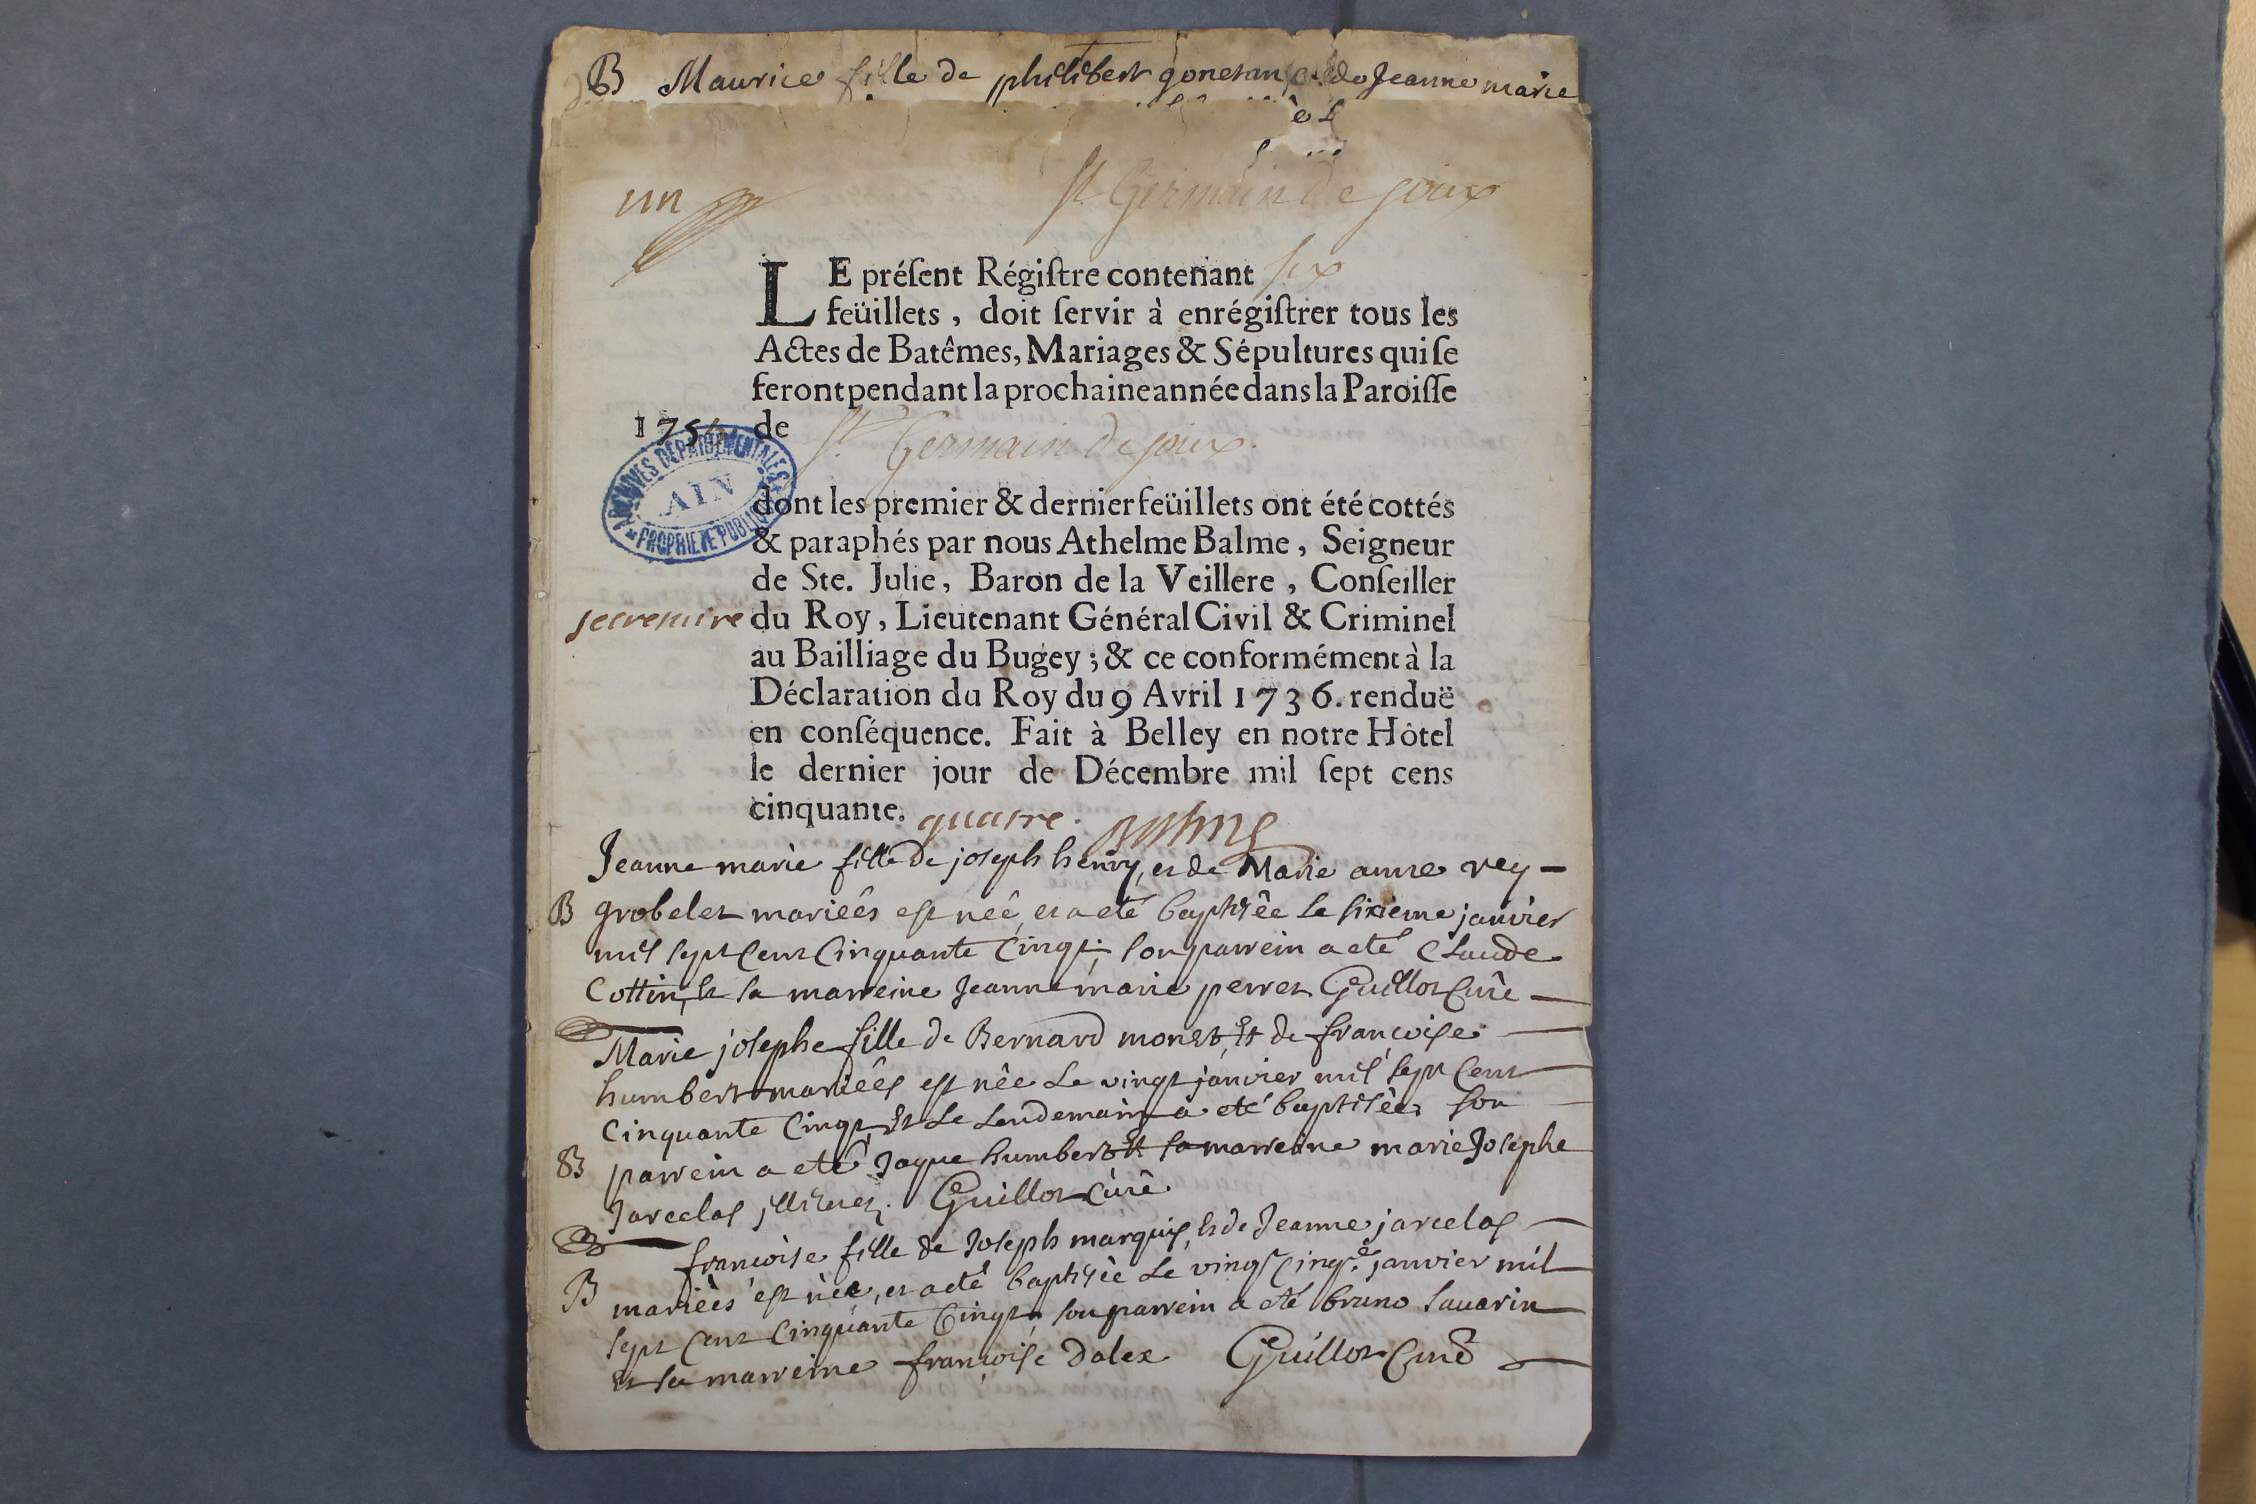 B Maurice fille de philibert gonetan de Jeanne marie
un
St Germain de joux
LE présent Régistre contenant six
feüillets, doit servir à enrégistrer tous les
Actes de Batêmes, Mariages & Sépultures qui se
feront pendant la prochaine année dans la Paroisse
175 de St Germain de joux.
ARCHIVES DEPARTEMENTALES
AIN
PROPRIETE PUBLIQUE
dont les premier & dernier feüillets ont été cottés
& paraphés par nous Athelme Balme, Seigneur
de Ste. Julie, Baron de la Veillere, Conseiller
secretaire du Roy, Lieutenant Général Civil & Criminel
au Bailliage du Bugey; & ce conformément à la
Déclaration du Roy du 9 Avril 1736. renduë
en conséquence. Fait à Belley en notre Hôtel
le dernier jour de Décembre mil sept cens
cinquante. quatre. Balme
Jeanne marie fille de joseph henry, et de Marie anne rey-
B grobelet mariéês est néê, et a eté baptisêe le sixieme janvier
mil sept Cent Cinquante Cinqt; son parrein a eté Claude
Cottin, et sa marreine Jeanne marie perret Guillot Curê
Marie josephe fille de Bernard monet, Et de françoise
humbert mariéês est nêe Le vingt janvier mil sept Cent
Cinquante Cinqt, Et Le Lendemain a eté baptisêe, son
B parrein a eté Jaque humbert Et sa marreine marie Josephe
Jarcelas, Guillot Curê
françoise fille de Joseph marquis, et de Jeanne jarcelas
B mariéès est néè, et a eté baptisèe Le vingt Cinqe. janvier mil
sept Cent Cinquante Cinqt, son parrein a eté bruno savarin
Et sa marreine françoise Dalex Guillot Curê